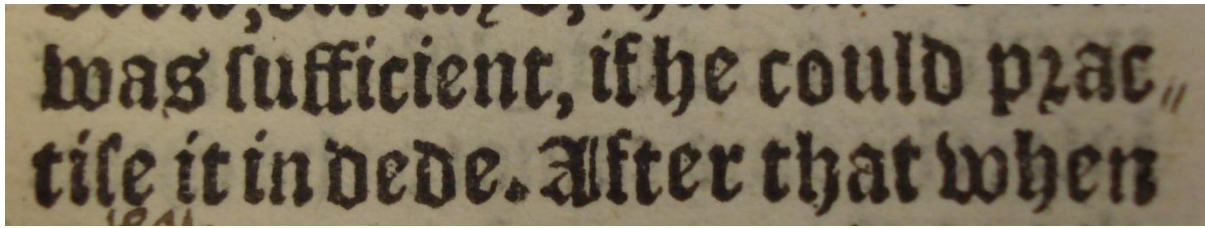 was ſufficient, if he could prac⸗
tiſe it in dede. After that when